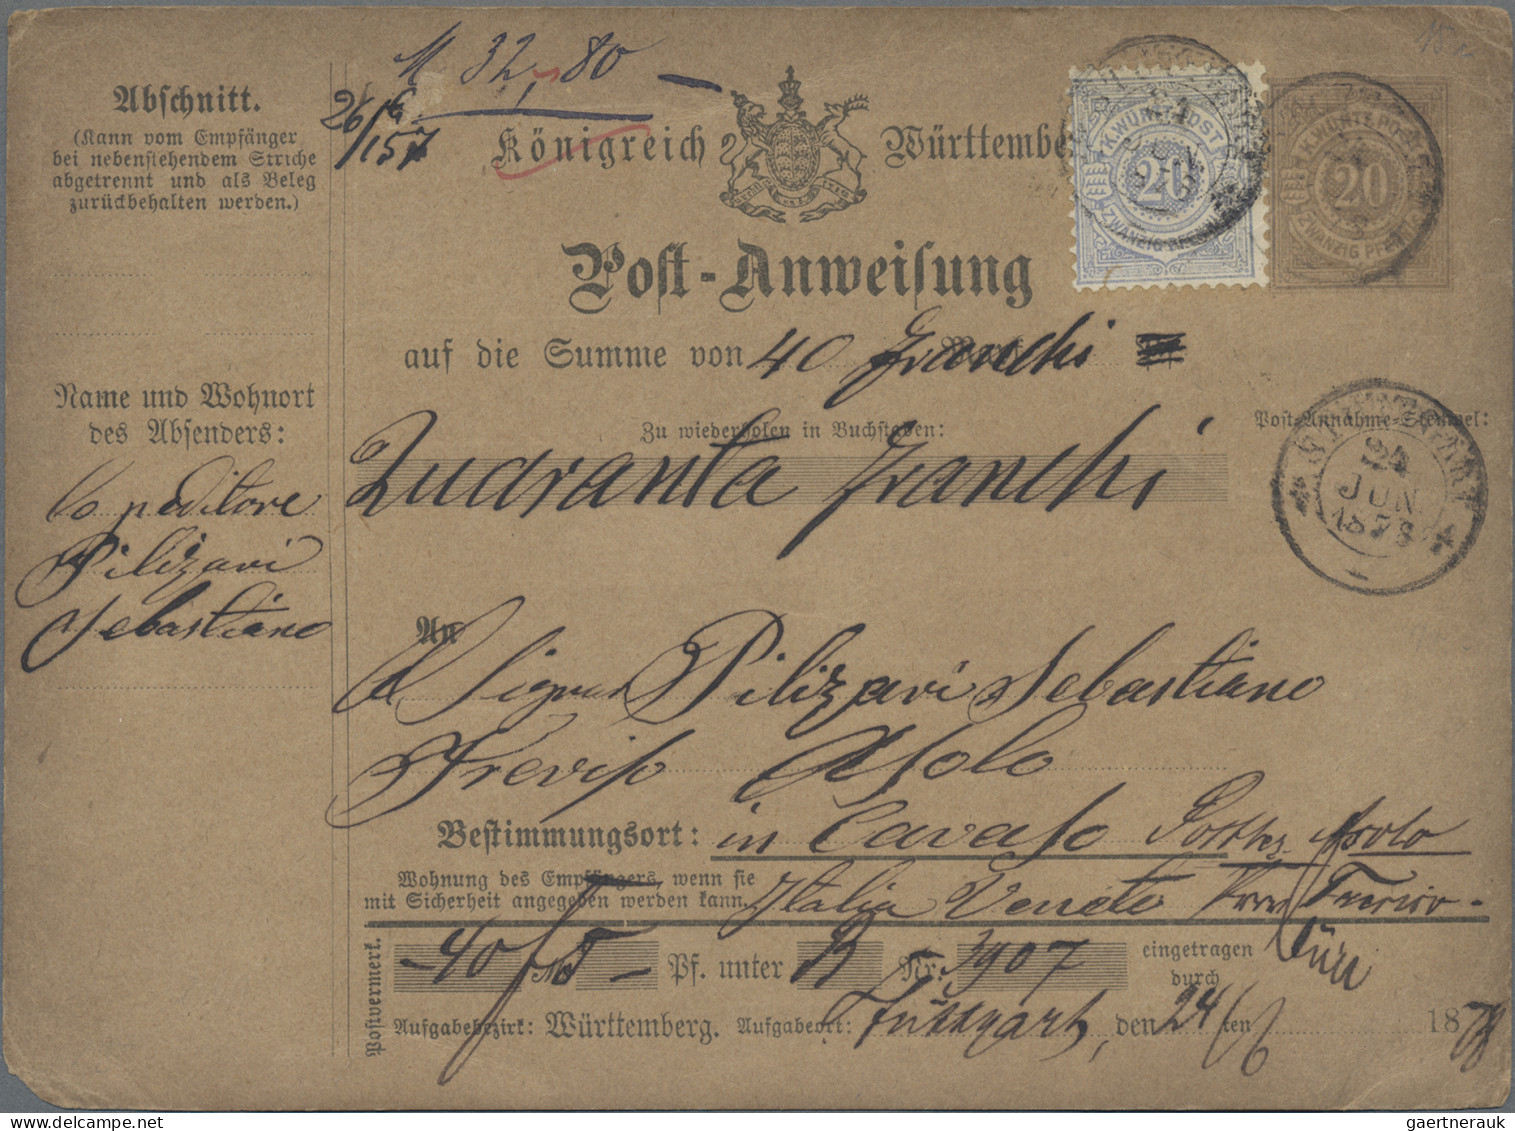 M 32,80
26/6
157
Abschnitt.
(Kann vom Empfänger
bei nebenstehendem Striche
abgetrennt und als Beleg
zurückbehalten werden.)
Königreich Württembe
K.WÜRTT.POST
20
ZWANZIG PFENNIG
K.WÜRTT.POST
20
ZWANZIG PFENNIG
Post-Anweisung
auf die Summe von 40 Franchi
Name und Wohnort
des Absenders:
Zu wiederholen in Buchstaben:
Post-Annahme-Stempel:
Quaranta Franchi
STUTTGART
24
JUN
1878
Speditore
Pilizari
Sebastiano
An
Al Signor Pilizari Sebastiano
Treviso Asolo
Bestimmungsort: in Cavaso Postbez. Asolo
Wohnung des Empfängers, wenn sie
mit Sicherheit angegeben werden kann.
Italia Veneto Prov Treviso.
Postvermerk.
40 Pf. unter B Nr. 3907 eingetragen
durch
Aufgabebezirk: Württemberg. Aufgabeort: Stuttgart, den 24/6 ten 1878
gaertnerauk